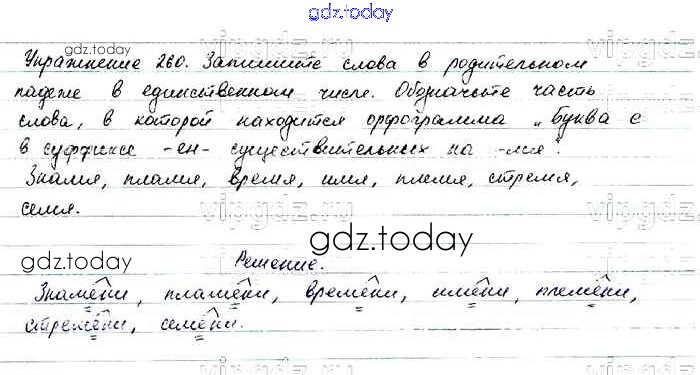 gdz.today
Упражнение 260. Запишите слова в родительном
gdz.today
падеже в единственном числе. Обозначьте часть
слова, в которой находится орфограмма „Буква е
в суффиксе -ен- существительных на -мя".
vipgdz.ru
Знамя, пламя, время, имя, племя, стремя,
семя.
vipgdz.ru
gdz.today
gdz.today
Решение.
Знамени, пламени, времени, имени, племени,
стремени, семени.
vipgdz.ru